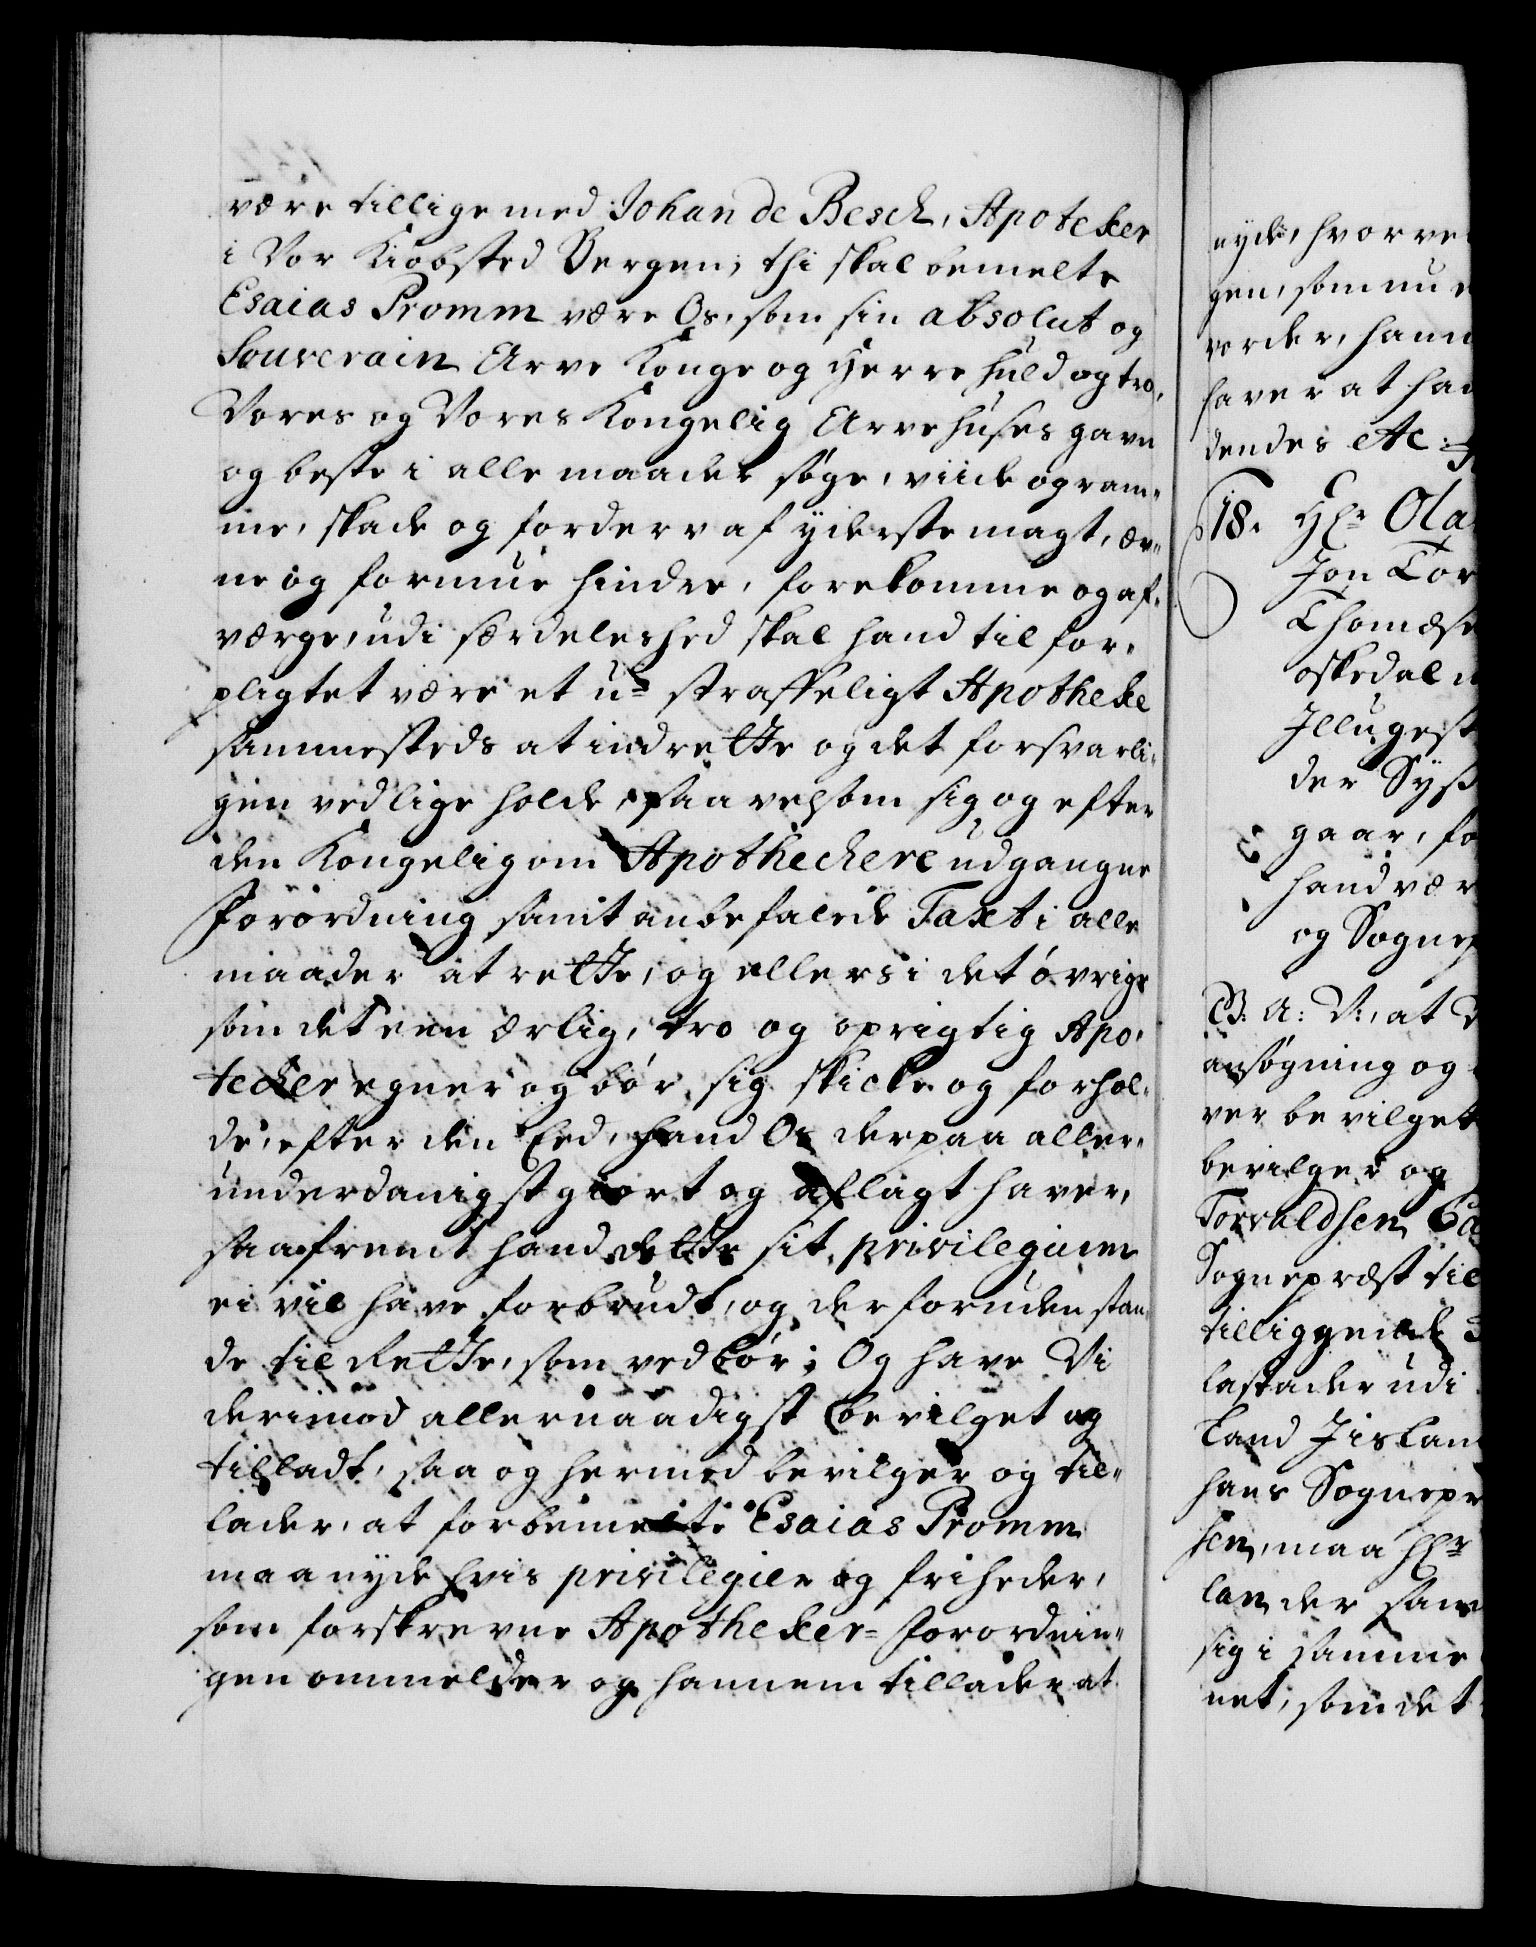 være tillige med Johan de Besch, Apoteker
i Vor Kiøbsted Bergen; thi skal bemelte
Esaias Promm være Os, som sin absolut og
Souverain Arve Konge og Herre huld og tro,
Vores og Vores Kongelig Arvehuses gavn
og beste i alle maader søge, viide og ram-
me, skade og forderv af yderste magt, æv-
ne og formue hindre, forekomme og af-
værge, udi særdeleshed skal hand til for-
pligtet være et u- straffeligt Apotheke
sammesteds at indrette og det forsvarli-
gen ved lige holde, saavelsom sig og efter
den Kongelig om Apothechere udgangne
Forordning samt anbefalede Taxt i alle
maader at rette, og ellers i det øvrige
som det een ærlig, tro og oprigtig Apo-
tecker egner og bør, sig skicke og forhol-
de, efter den Eed, hand Os derpaa aller-
underdanigst giort og aflagt haver,
saafremt hand dette sit privilegium
ei vil have forbrudt, og der foruden stan-
de til Rette, som ved bør; Og have Vi
derimod allernaadigst bevilget og
tilladt, saa og hermed bevilger og til-
lader, at forbemelte Esaias Promm
maa nyde hvis privilegier og friheder,
som forskrevne Apotheker= Forordnin-
gen ommelder og hannem tillader at
nyde, hvorve
gen, som nu e
vorder, hann
haver at han
dendes etc:
18. Hr Ola
Jon Tor
Thomæse
oskedal
Illugest
der Syß
gaar, fo
hand vær
og Sognep
G: A: V:, at V
ansøgning og
ver bevilget
bevilger og
Torvaldsen
Sognepræst til
tilliggende
lastader udi
Land Iislan
hans Sognepr
sen, maa Hr
lan der sam
sig i samme
net, som det